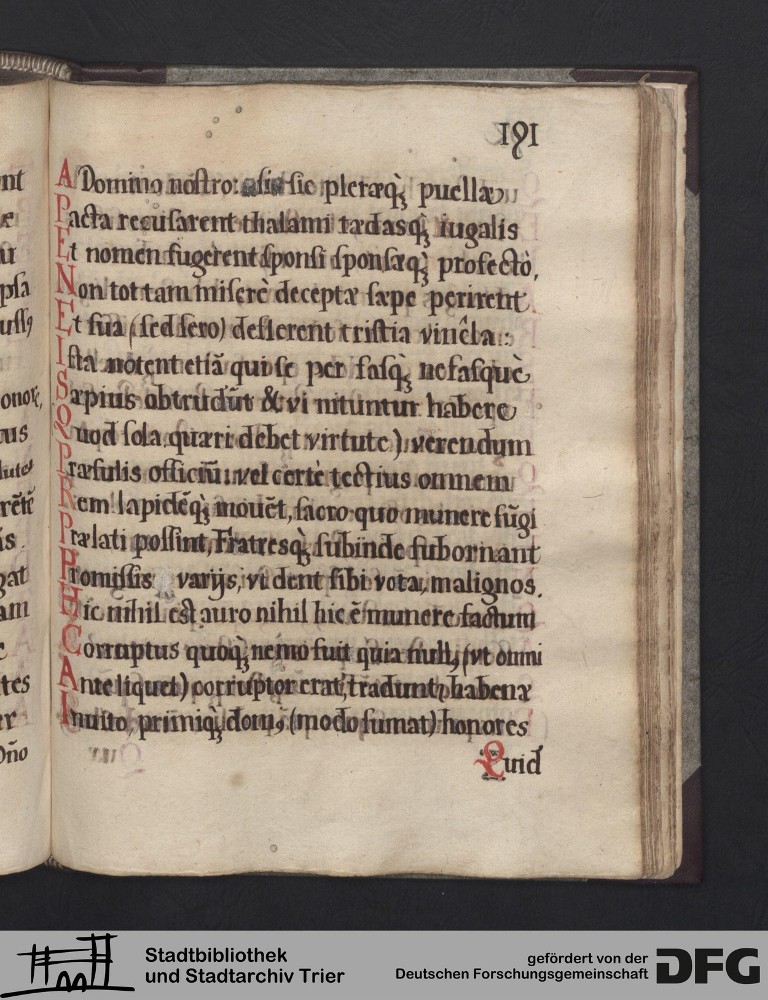 191
A Domino nostro: si sic pleræq;̀ puellæ
Pacta recusarent thalami tædasq;̀ iugalis
Et nomen fugerent sponsi sponsæq;̀ profectò,
Non tot tam miserè deceptæ sæpe perirent
Et sua (sed sero) deflerent tristia vincla:
Ista notent etiā qui se per fasq;̀ nefasquè
Sæpius obtrudūt & vi nituntur habere
Quod sola quæri debet virtute) verendum
Præsulis officiū: vel certè tectius omnem
Rem lapidēq;̀ mouēt, sacro quo munere fūgi
Prælati possint, Fratresq;̀ subinde subornant
Promissis varijs, vt dent sibi vota, malignos.
Hic nihil est auro nihil hic ē munere factum
Corruptus quoq;̀ nemo fuit quia null9 (vt omni
Ante liquet) corruptor erat, traduntur habenæ
Inuito, primiq;̀ dom9 (modo sumat) honores
Quid
nt
æ
u
psa
uss9
onorē,
tus
lutes
rētē
is.
gat
am
e
tes
er
Dño
Stadtbibliothek
und Stadtarchiv Trier
gefördert von der
Deutschen Forschungsgemeinschaft
DFG